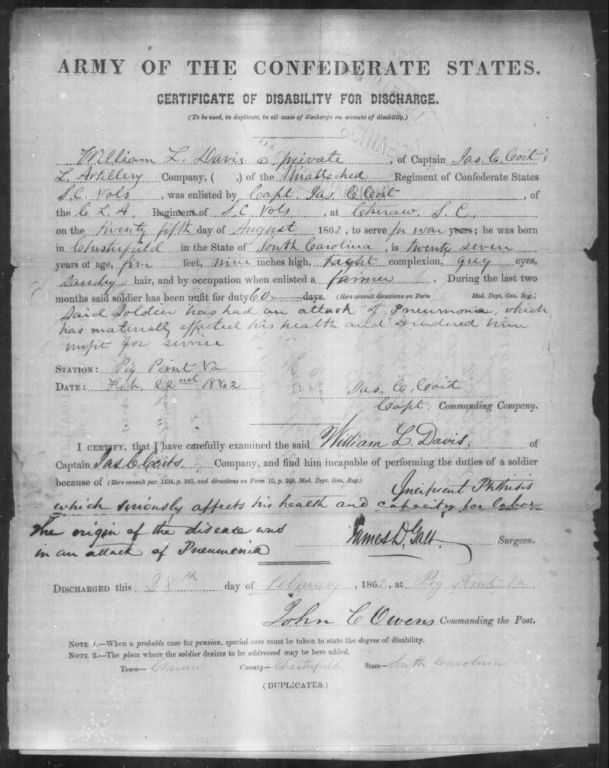 ARMY OF THE CONFEDERATE STATES.
CERTIFICATE OF DISABILITY FOR DISCHARGE.
(To be used, in duplicate, in all cases of discharge on account of disability.)
William L. Davis a private, of Captain Jas. C. Coit's
L. Artillery Company, ( .) of the Unattached Regiment of Confederate States
S.C. Vols, was enlisted by Capt. Jas C Coit, of
the C. L. A. Regiment of S.C. Vols, at Cheraw, S.C.,
on the twenty fifth day of August 1862, to serve for war years; he was born
in Chesterfield in the State of South Carolina, is twenty seven
years of age, five feet, nine inches high, complexion, grey eyes,
Sandy hair, and by occupation when enlisted a farmer. During the last two
months said soldier has been unfit for duty 60 days. (Here consult directions on Form Med. Dept, Gen. Reg.;)
Said Soldier has had an attack of Pneumonia, which
has materially effected his health and rendered him
unfit for service
STATION: Pig Point Va
DATE: Feb. 22nd 1862
Jas. C. Coit
Capt. Commanding Company.
I CERTIFY, that I have carefully examined the said William L. Davis, of
Captain Jas C Coits Company, and find him incapable of performing the duties of a soldier
because of (Here consult par. 1134, p. 243, and directions on Form 12, p. 269, Med. Dept. Gen. Reg.) Incipient Phthisis
which seriously affects his health and capacity for labor.
The origin of the disease was
in an attack of Pneumonia
James D. Galt. Surgeon.
DISCHARGED this 28th day of February, 1862, at Pig Point Va
John C Owens Commanding the Post.
NOTE 1.—When a probable case for pension, special care must be taken to state the degree of disability.
NOTE 2.—The place where the soldier desires to be addressed may be here added.
Town—Cheraw County—Chesterfield State—South Carolina
(DUPLICATES.)